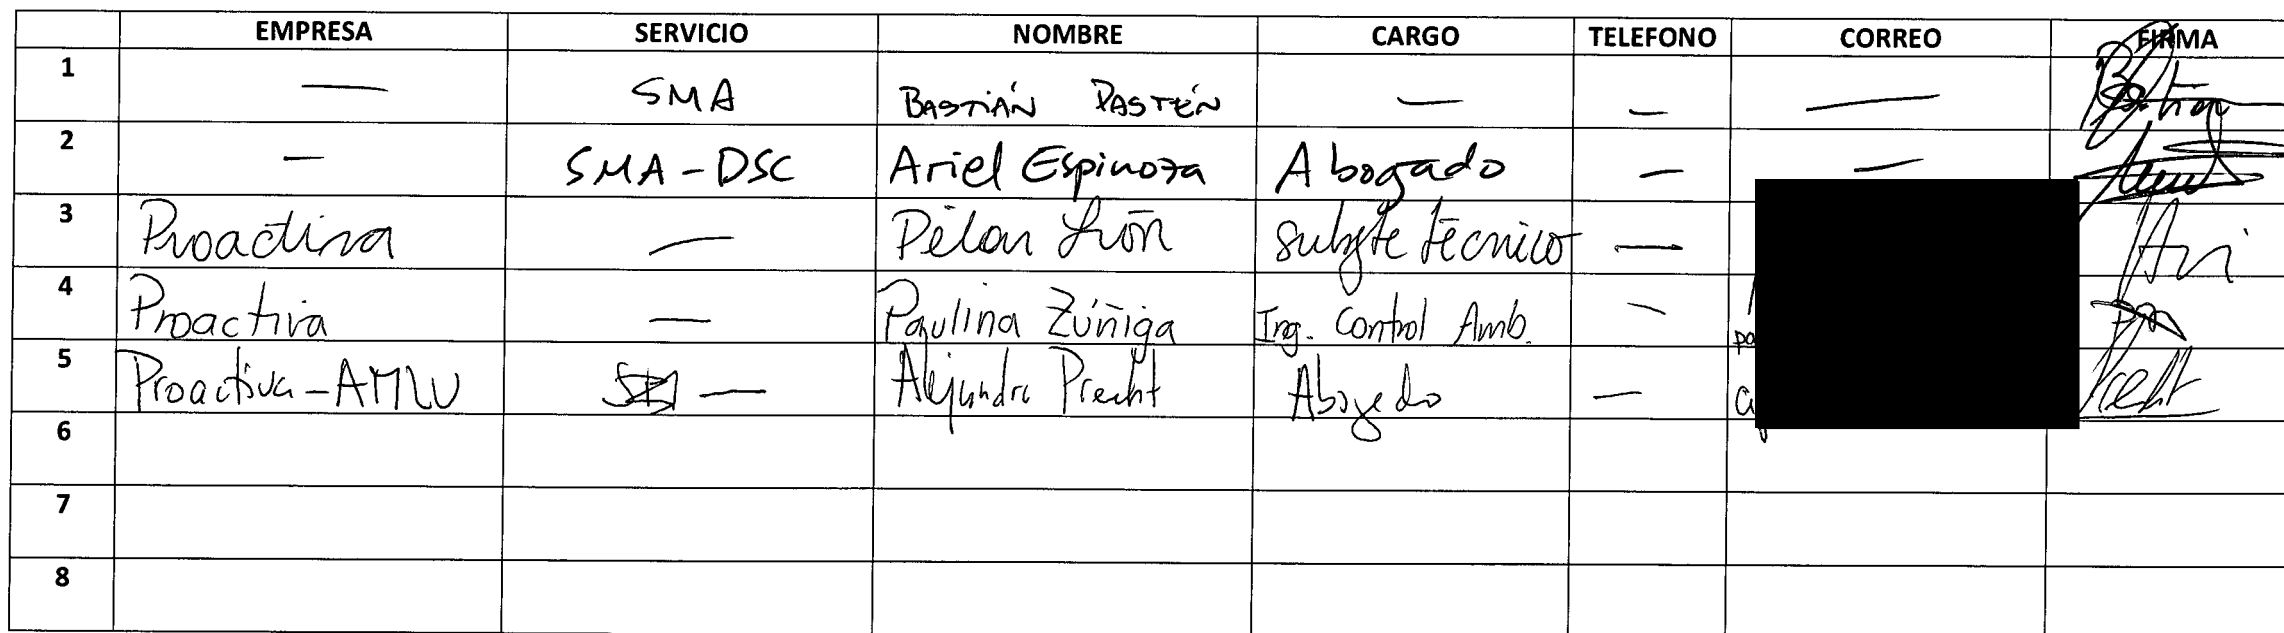 EMPRESA SERVICIO NOMBRE CARGO TELEFONO CORREO FIRMA
1 — SMA BASTIÁN PASTÉN — — —
2 — SMA-DSC Ariel Espinoza Abogado — —
3 Proactiva — León subgte técnico —
4 Proactiva — Paulina Zúñiga Ing. Control Amb. —
5 Proactiva-AMLV — Alejandro Precht Abogado —
6
7
8